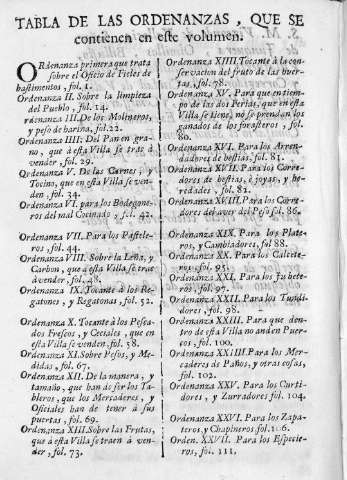 TABLA DE LAS ORDENANZAS, QUE SE
contienen en este volumen.
ORdenanza primera que trata
sobre el Oficio de Fieles de
bastimentos, fol. 1.
Ordenanza II. Sobre la limpieza
del Pueblo, fol. 14.
rdenanza III. De los Molineros,
y peso de harina, fol. 22.
Ordenanza IIII: Del Pan en gra-
no, que à esta Villa se trae à
vender, fol. 29.
Ordenanza V. De las Carnes, y
Tocino, que en esta Villa se ven-
den, fol. 34.
Ordenanza VI. para los Bodegone-
ros del mal Cocinado, fol. 42.
Ordenanza VII. Para los Pastele-
ros, fol. 44.
Ordenanza VIII. Sobre la Leña, y
Carbon, que à esta Villa se trae
à vender, fol. 48.
Ordenanza IX. Tocante à los Re-
gatones, y Regatonas, fol. 52.
Ordenanza X. Tocante à los Pesca-
dos Frescos, y Ceciales, que en
esta Villa se venden, fol. 58.
Ordenanza XI. Sobre Pesos, y Me-
didas, fol. 67.
Ordenanza XII. De la manera, y
tamaño, que han de ser los Ta-
bleros, que los Mercaderes, y
Oficiales han de tener à sus
puertas, fol. 69.
Ordenanza XIII. Sobre las Frutas,
que à esta Villa se traen à ven-
der, fol. 73.
Ordenanza XIIII. Tocante à la con-
servacion del fruto de las huer-
tas, fol. 78.
Ordenanza XV. Para que en tiem-
po de las dos Ferias, que en esta
Villa se tiene, no se prendan los
ganados de los forasteros, fol.
80.
Ordenanza XVI. Para los Arren-
dadores de bestias, fol. 81.
Ordenanza XVII. Para los Corre-
dores de bestias, è joyas, y he-
redades, fol. 82.
Ordenanza XVIII. Para los Corre-
dores del aver del Peso fol. 86.
Ordenanza XIX. Para los Plate-
ros, y Cambiadores, fol 88.
Ordenanza XX. Para los Calcete-
ros, fol. 95.
Ordenanza XXI. Para los Jubete-
ros, fol. 97.
Ordenanza XXII. Para los Tundi-
dores, fol. 98.
Ordenanza XXIII. Para que den-
tro de esta Villa no anden Puer-
cos, fol. 100.
Ordenanza XXIIII. Para los Mer-
caderes de Paños, y otras cosas,
fol. 102.
Ordenanza XXV. Para los Curti-
dores, y Zurradores fol. 104.
Ordenanza XXVI. Para los Zapa-
teros, y Chapineros fol. 106.
Orden. XXVII. Para los Especie-
ros, fol. 111.